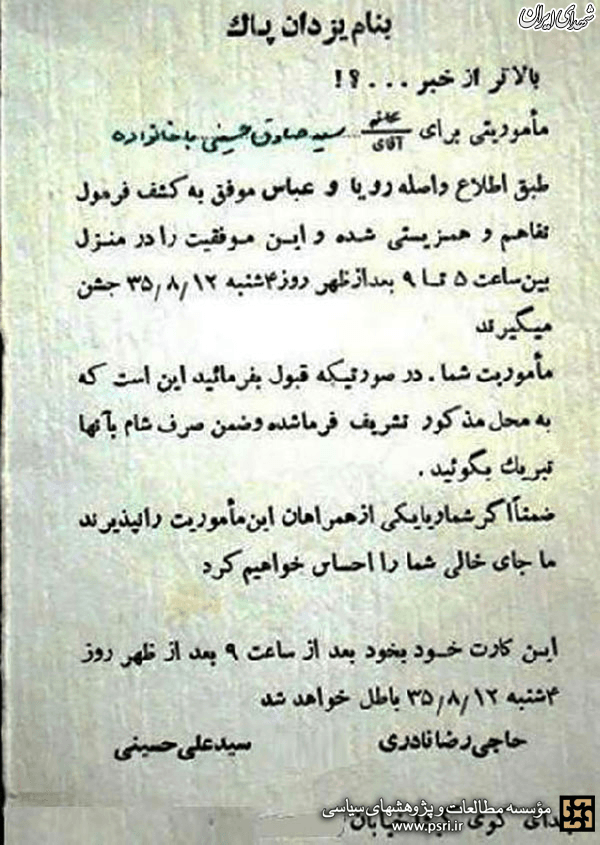 شهدای ایران
بنام یزدان پاک
بالاتر از خبر ...؟!
مأموریتی برای خانم / آقای سید صادق حسینی با خانواده
طبق اطلاع واصله رویا و عباس موفق به کشف فرمول
تفاهم و همزیستی شده و این موفقیت را در منزل
بین ساعت ۵ تا ۹ بعدازظهر روز ۴شنبه ۳۵/۸/۱۲ جشن
میگیرند
مأموریت شما. در صورتیکه قبول بفرمائید این است که
به محل مذکور تشریف فرماشده وضمن صرف شام بآنها
تبریک بگوئید.
ضمناً اگر شما ریا یکی از همراهان این مأموریت را نپذیرند
ما جای خالی شما را احساس خواهیم کرد
این کارت خود بخود بعد از ساعت ۹ بعد از ظهر روز
۴شنبه ۳۵/۸/۱۲ باطل خواهد شد
حاجی رضا نادری سید علی حسینی
مؤسسه مطالعات و پژوهشهای سیاسی
www.psri.ir
کوی خیابان